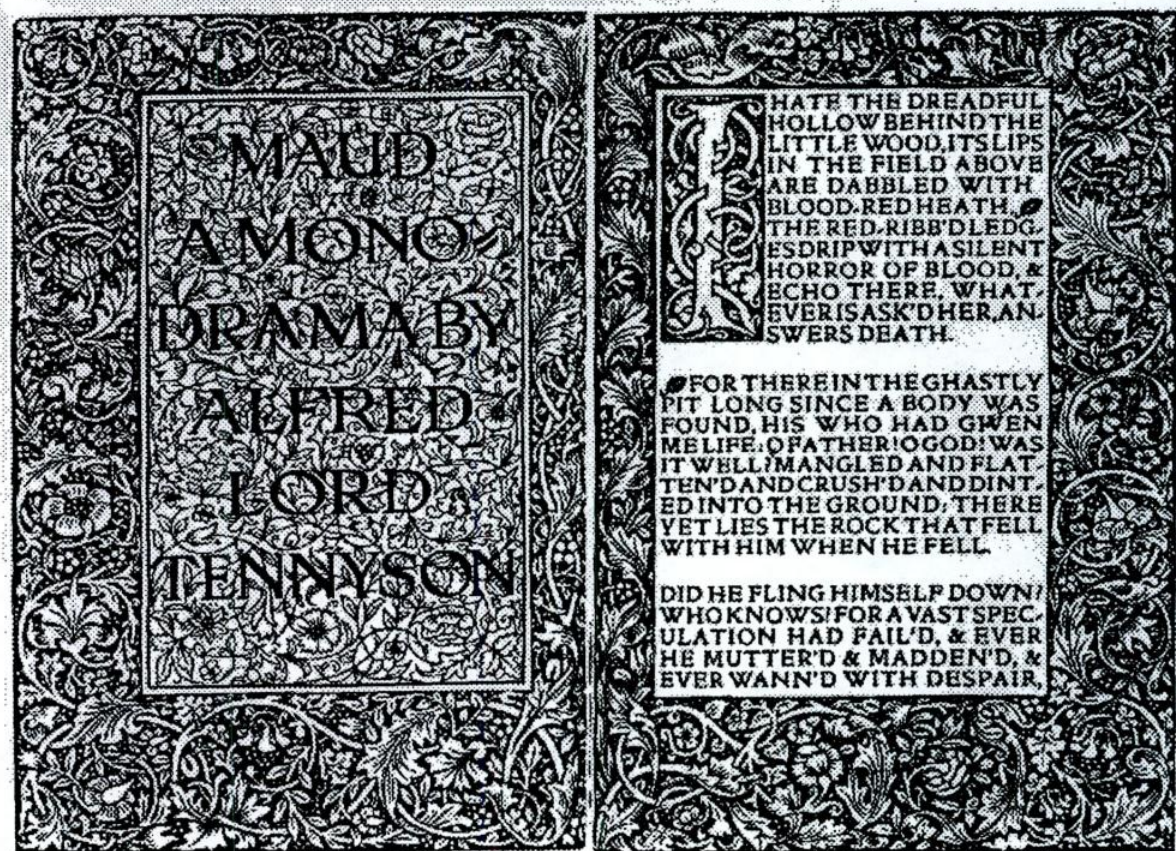 MAUD
A MONO-
DRAMA BY
ALFRED
LORD
TENNYSON
I HATE THE DREADFUL
HOLLOW BEHIND THE
LITTLE WOOD, ITS LIPS
IN THE FIELD ABOVE
ARE DABBLED WITH
BLOOD-RED HEATH,
THE RED-RIBB'D LEDG-
ES DRIP WITH A SILENT
HORROR OF BLOOD, &
ECHO THERE, WHAT-
EVER IS ASK'D HER, AN-
SWERS DEATH.
FOR THERE IN THE GHASTLY
PIT LONG SINCE A BODY WAS
FOUND, HIS WHO HAD GIVEN
ME LIFE: O FATHER! O GOD! WAS
IT WELL? MANGLED AND FLAT
TEN'D AND CRUSH'D AND DINT-
ED INTO THE GROUND: THERE
YET LIES THE ROCK THAT FELL
WITH HIM WHEN HE FELL.
DID HE FLING HIMSELF DOWN?
WHO KNOWS? FOR A VAST SPEC-
ULATION HAD FAIL'D, & EVER
HE MUTTER'D & MADDEN'D, &
EVER WANN'D WITH DESPAIR,